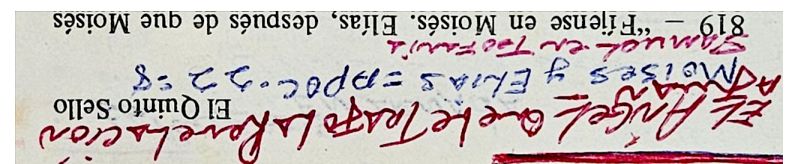 EL ANGEL Que Le TraJo La Revelacion
A JUAN
El Quinto Sello
Moises y Elias = Apoc. 22=8
Samuel en
819 — “Fíjense en Moisés. Elías, después de que Moisés